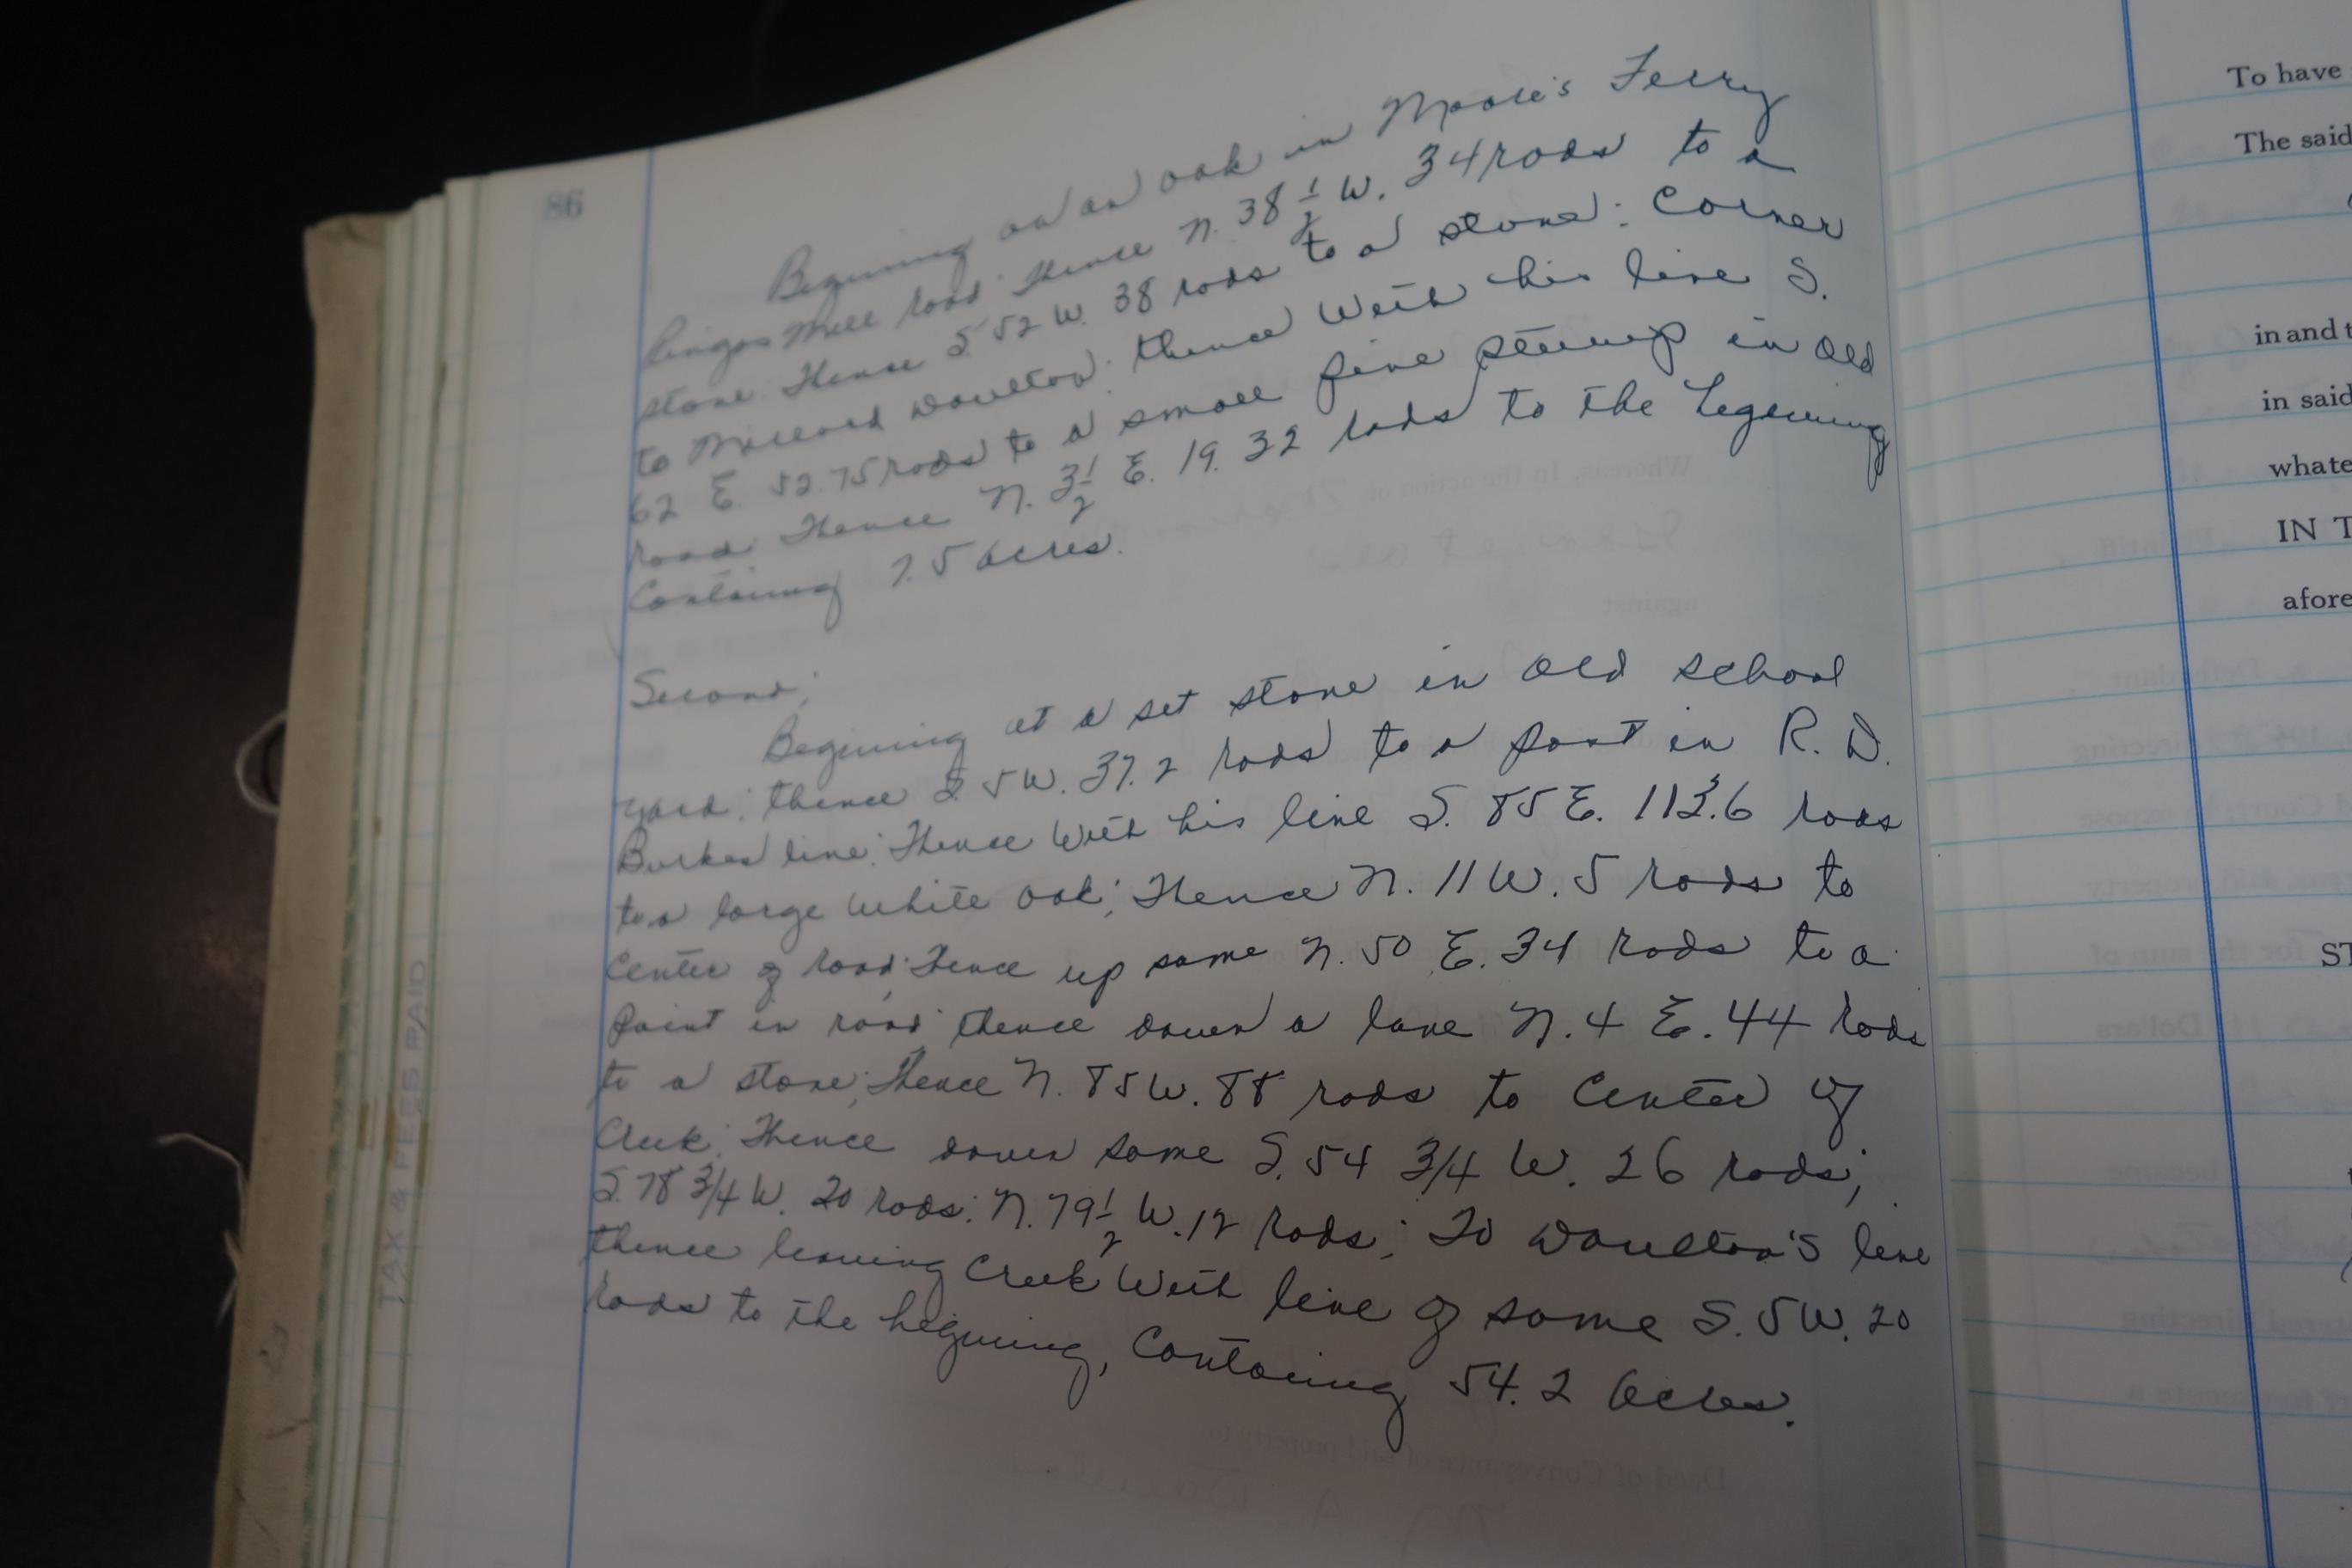 86
Begining on an oak in Moore's Ferry
Ringos Mill road: thence N. 38 1/2 W. 34 rods to a
stone: thence S 52 W. 38 rods to a stone: Corner
to Millard Doulton: thence with his line S.
62 E. 52.75 rods to a small pine stump in old
road: thence N. 3 1/2 E. 19.32 rods to the begining
Containing 7.5 acres.
Second;
Begining at a set stone in old school
yard: thence S. 5 W. 37.2 rods to a post in R. D.
Burkes line: thence with his line S. 85 E. 113.6 rods
to a large white oak; thence N. 11 W. 5 rods to
Center of road; thence up same N. 50 E. 34 rods to a
point in road; thence down a lane N. 4 E. 44 rods
to a stone; thence N. 85 W. 88 rods to Center of
Creek: thence down same S. 54 3/4 W. 26 rods;
S. 78 3/4 W. 20 rods: N. 79 1/2 W. 12 rods; To Doulton's line
thence leaving Creek with line of same S. 5 W. 20
rods to the begining, Containing 54.2 acres.
TAX & FEES PAID
To have
The said
in and t
in said
whate
IN T
afore
ST